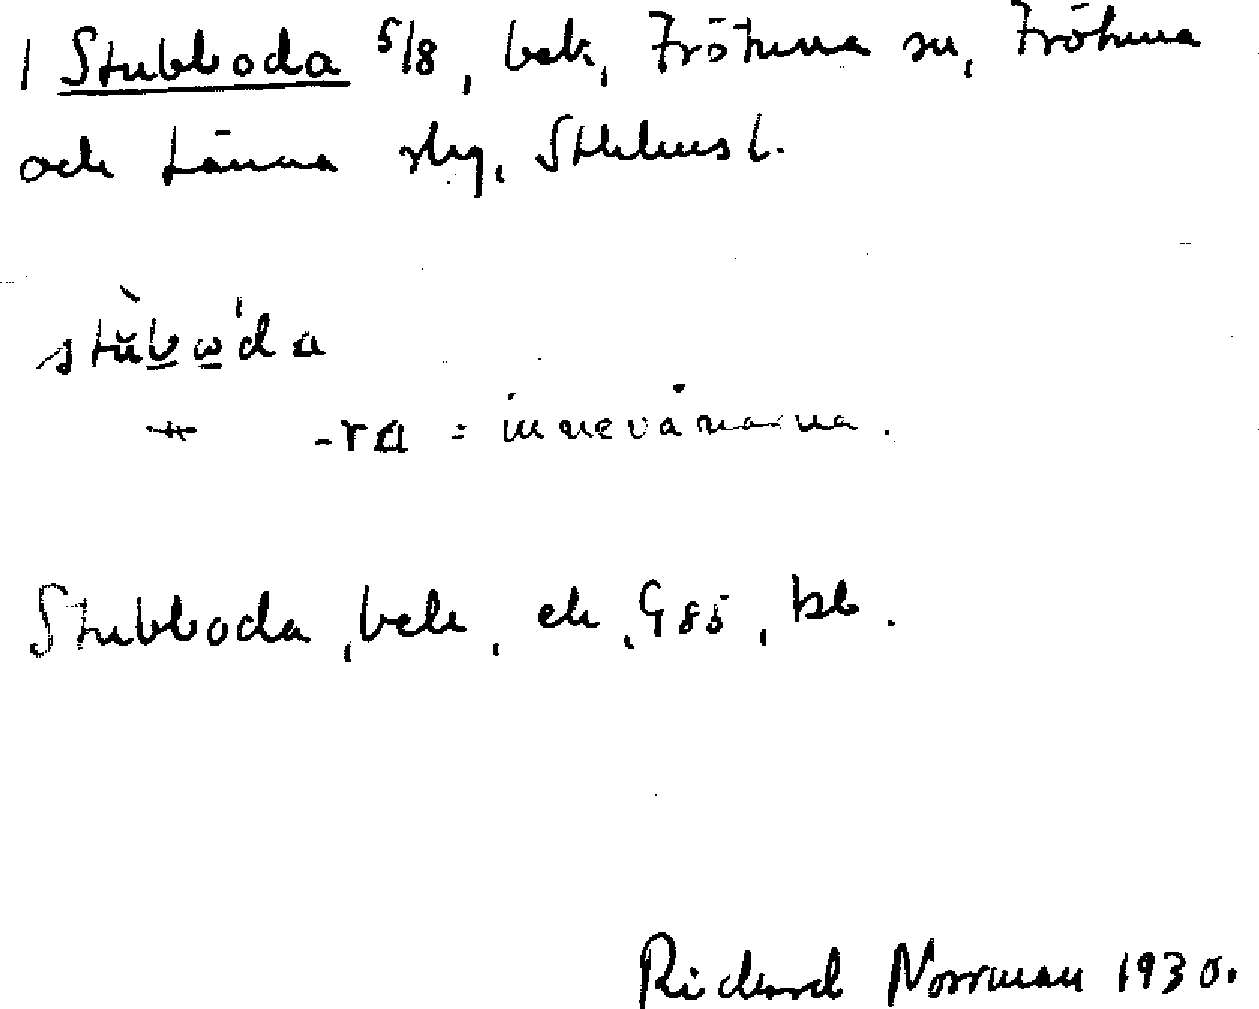 1 Stubboda 5/8, bek, Frötuna sn, Frötuna
och Länna slg, Sthlms l.
stŭbω'da
" -ra = innevånarna.
Stubboda, bek, ek, G85, bb.
Richard Norrman 1930.